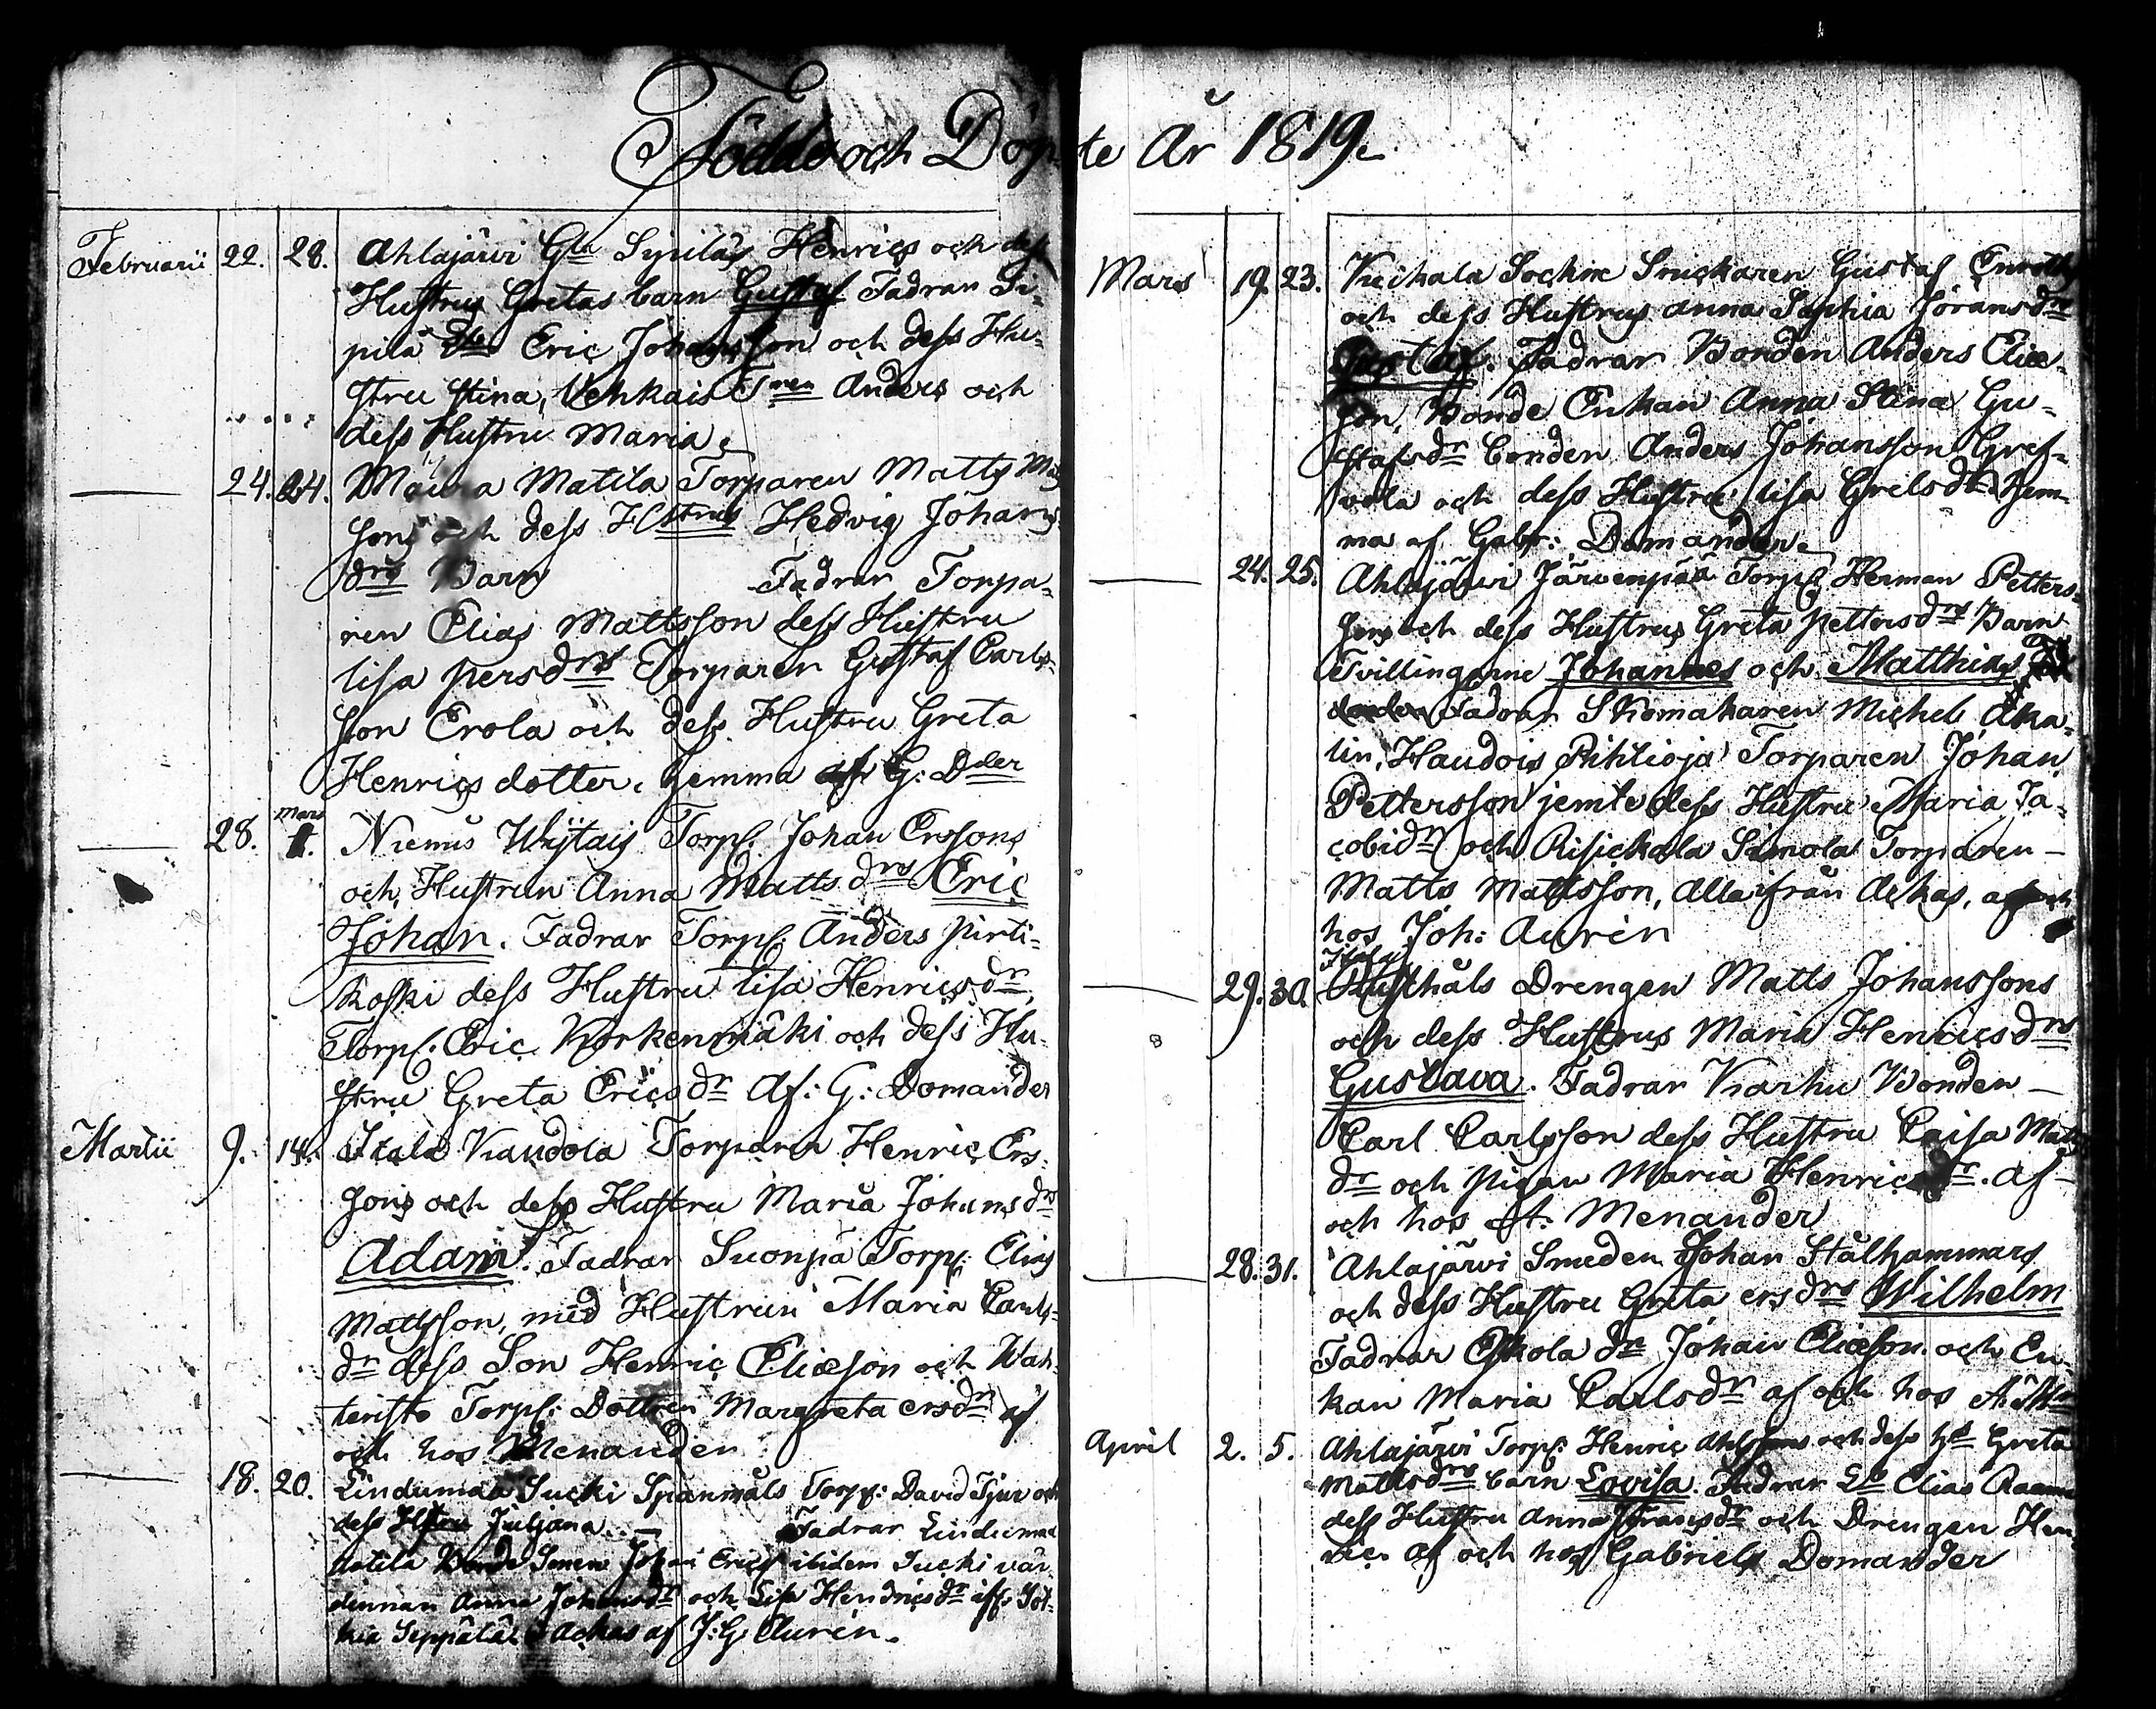 Födde och Döpte År 1819.
Februarii 22. 28. Ahlajärvi Gla Sipiläs Henrics och dess
Hustrus Gretas barn Gustaf Fadrar Si-
pilä Eric Johansson och dess Hu-
stru Stina, Vehkais Anders och
dess Hustru Maria.
24. 24. Matila Torparen Matts
sons och dess Hustrus Hedvig Johans
drs Barn Fadrar Torpa-
ren Elias Mattsson dess Hustru
lisa persdrs Torparen Gustaf Carls-
son Erola och dess Hustru Greta
Henrics dotter. hemma af G: Dder
28. Mars 1. Niemis Torp. Johan Erssons
och Hustrun Anna Matts drs Eric
Johan. Fadrar Torp. Anders pirti-
koski dess Hustru lisa Henricsdr,
Torp. Eric Korkenmäki och dess Hu-
stru Greta Ericsdr Af: G: Domander
Martii 9. 14. Itala Kaudola Torparen Henric Ers-
sons och dess Hustru Maria Johansdr
Adam. Fadrar Suonpä Torp: Elias
Mattsson, med Hustrun Maria Carls-
dr dess Son Henric Eliæson och Wah-
teristo Torp: Dottren Margreta ersdr af
och hos Menander
18. 20. Lindumaa Sucki Spanmåls Torp: David och
dess Hstru Juljana. Fadrar Lindumaa
Bonde Sonen Johan Erics ibidem Sucki vär-
dinnan Anna Johansdr och Lisa Hendricsdr
Seppälä i Ackas af J: G: Aurén.
Mars 19. 23. Sockne Snickaren Gustaf
och dess Hustrus Anna Sophia Jöransdr
Gustaf. Fadrar Bonden Anders Eliæ-
son, Bonde Enkan Anna Stina Gu-
stafsdr bonden Anders Johansson Gref-
vola och dess Hustru lisa Grelsdr hem-
ma af Gabr: Domander.
24. 25. Ahlajärvi Järvenpää Torp. Herman Petters-
sons och dess Hustrus Greta pettersdrs Barn
Tvillingarne Johannes och Matthias
Fadrar Skomakaren Michel Aka-
lin, Haudois Pihlioja Torparen Johan
Pettersson jemte dess Hustru Maria Ja-
cobidr och Risickala Simola Torparen
Matts Mattsson, alla ifrån Ackas, af och
hos Joh: Aurén
29. 30. Itala Rusthåls Drengen Matts Johanssons
och dess Hustrus Maria Henricsdrs
Gustava. Fadrar Karhu Bonden
Carl Carlsson dess Hustru Caisa Matts
dr och pigan Maria Henricsdr. af
och hos A: Menander
28. 31. Ahlajärvi Smeden Johan Stålhammars
och dess Hustru Greta ers drs Wilhelm
Fadrar Eskola dr Johan Eliæson och En-
kan Maria Carlsdr af och hos A: Mr
April 2. 5. Ahlajärvi Torp: Henric och dess Greta
Mattsdrs barn Lovisa. Fadrar Elias
dess Hustru Anna Fransdr och Drengen Hen
ric af och hos Gabriels Domander